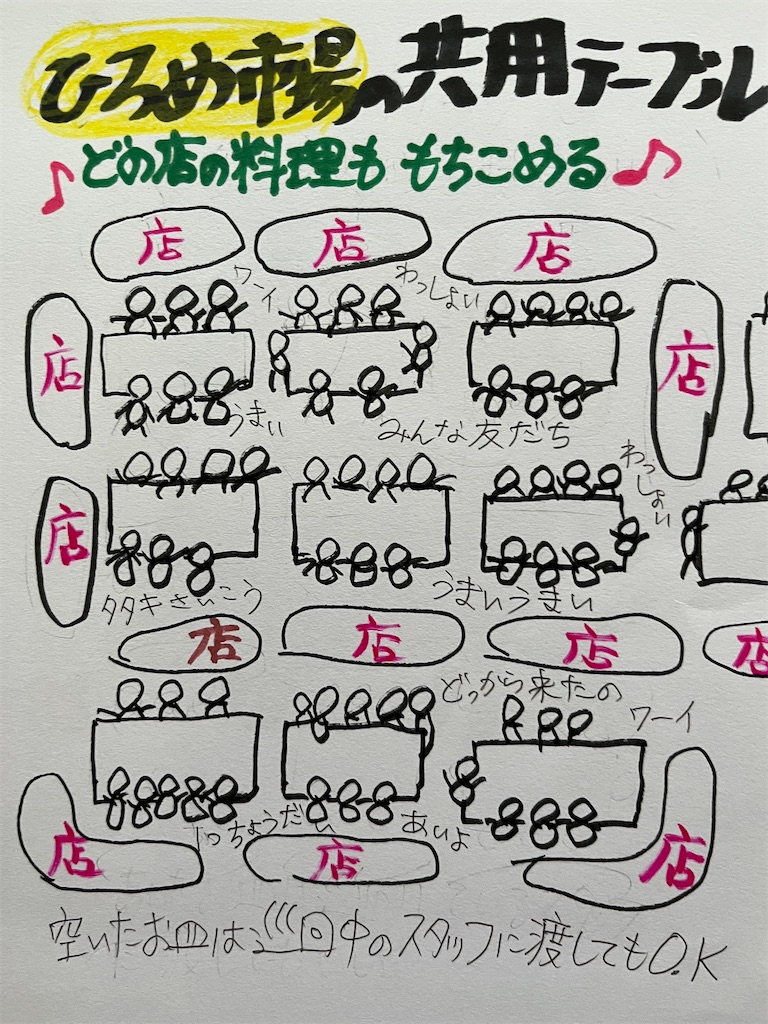 ひろめ市場の共用テーブル
♪どの店の料理も もちこめる♪
店 店 店
ワーイ わっしょい
店 店
うまい みんな友だち
わっしょい
店
タタキさいこう うまいうまい
店 店 店 店
どっから来たの
ワーイ
1つちょうだい あいよ
店 店 店
空いたお皿は巡回中のスタッフに渡してもO.K